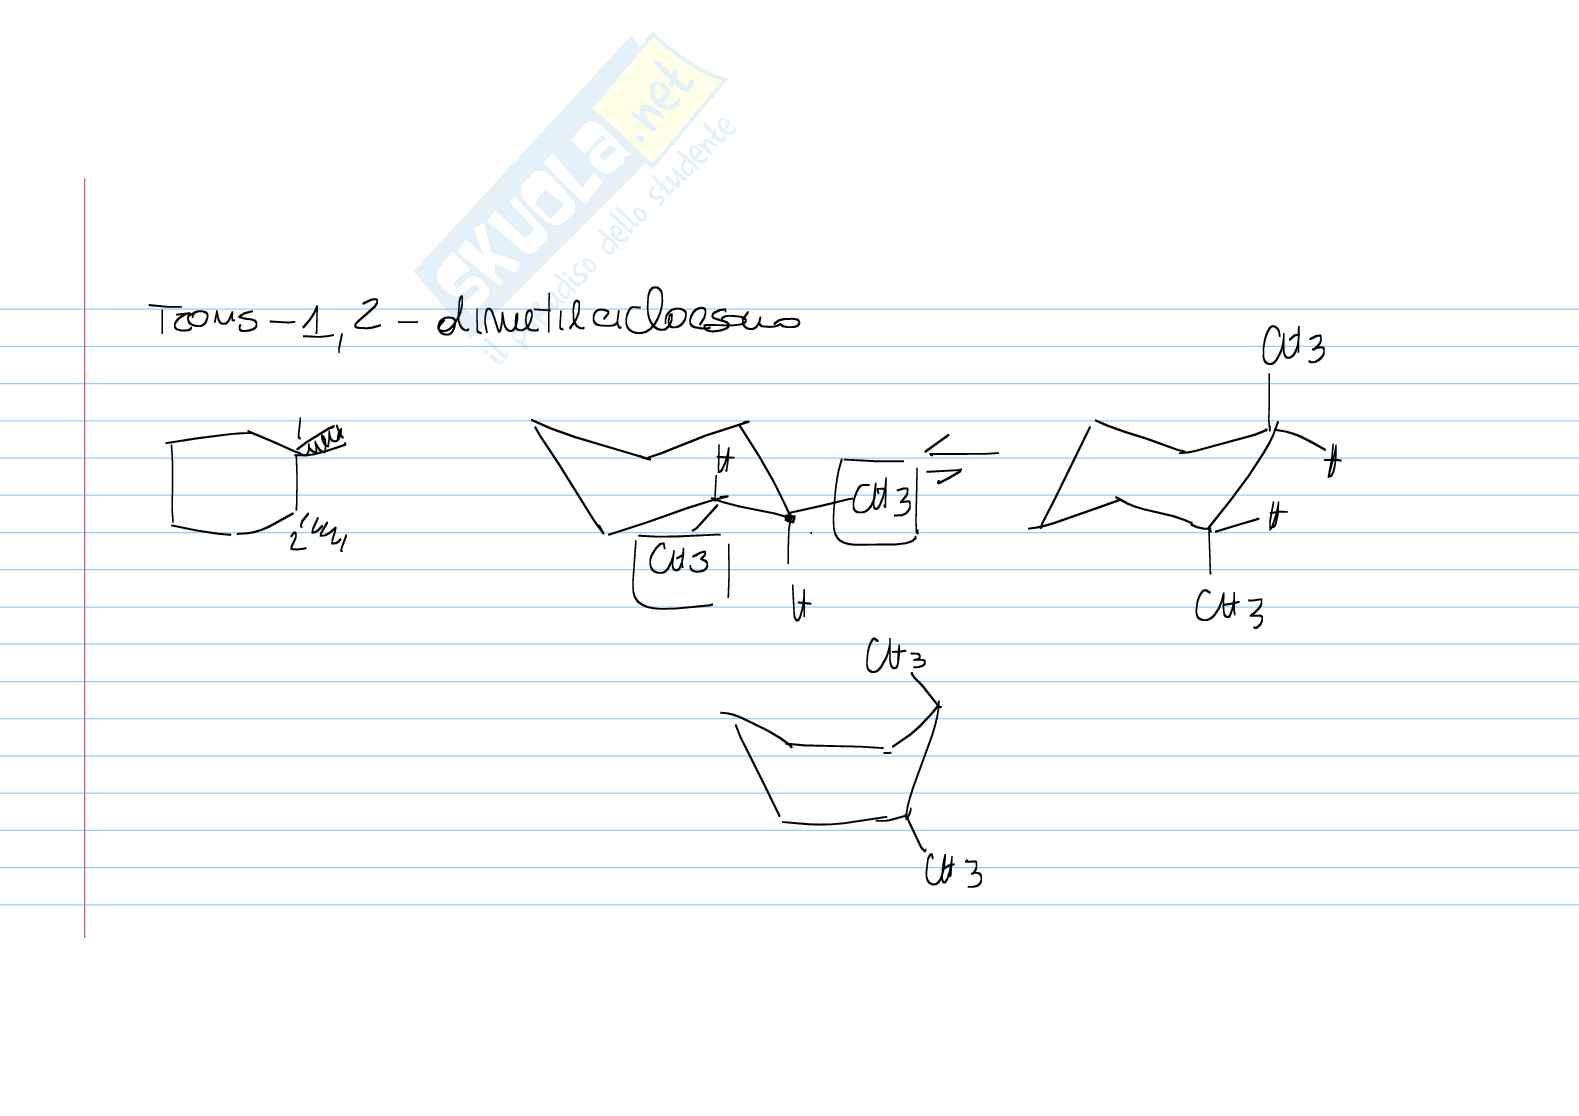 SKUOLA.net
il paradiso dello studente
Trans-1,2-dimetilcicloesano
CH3
1
H
CH3
H
2
H
CH3
H
CH3
CH3
CH3